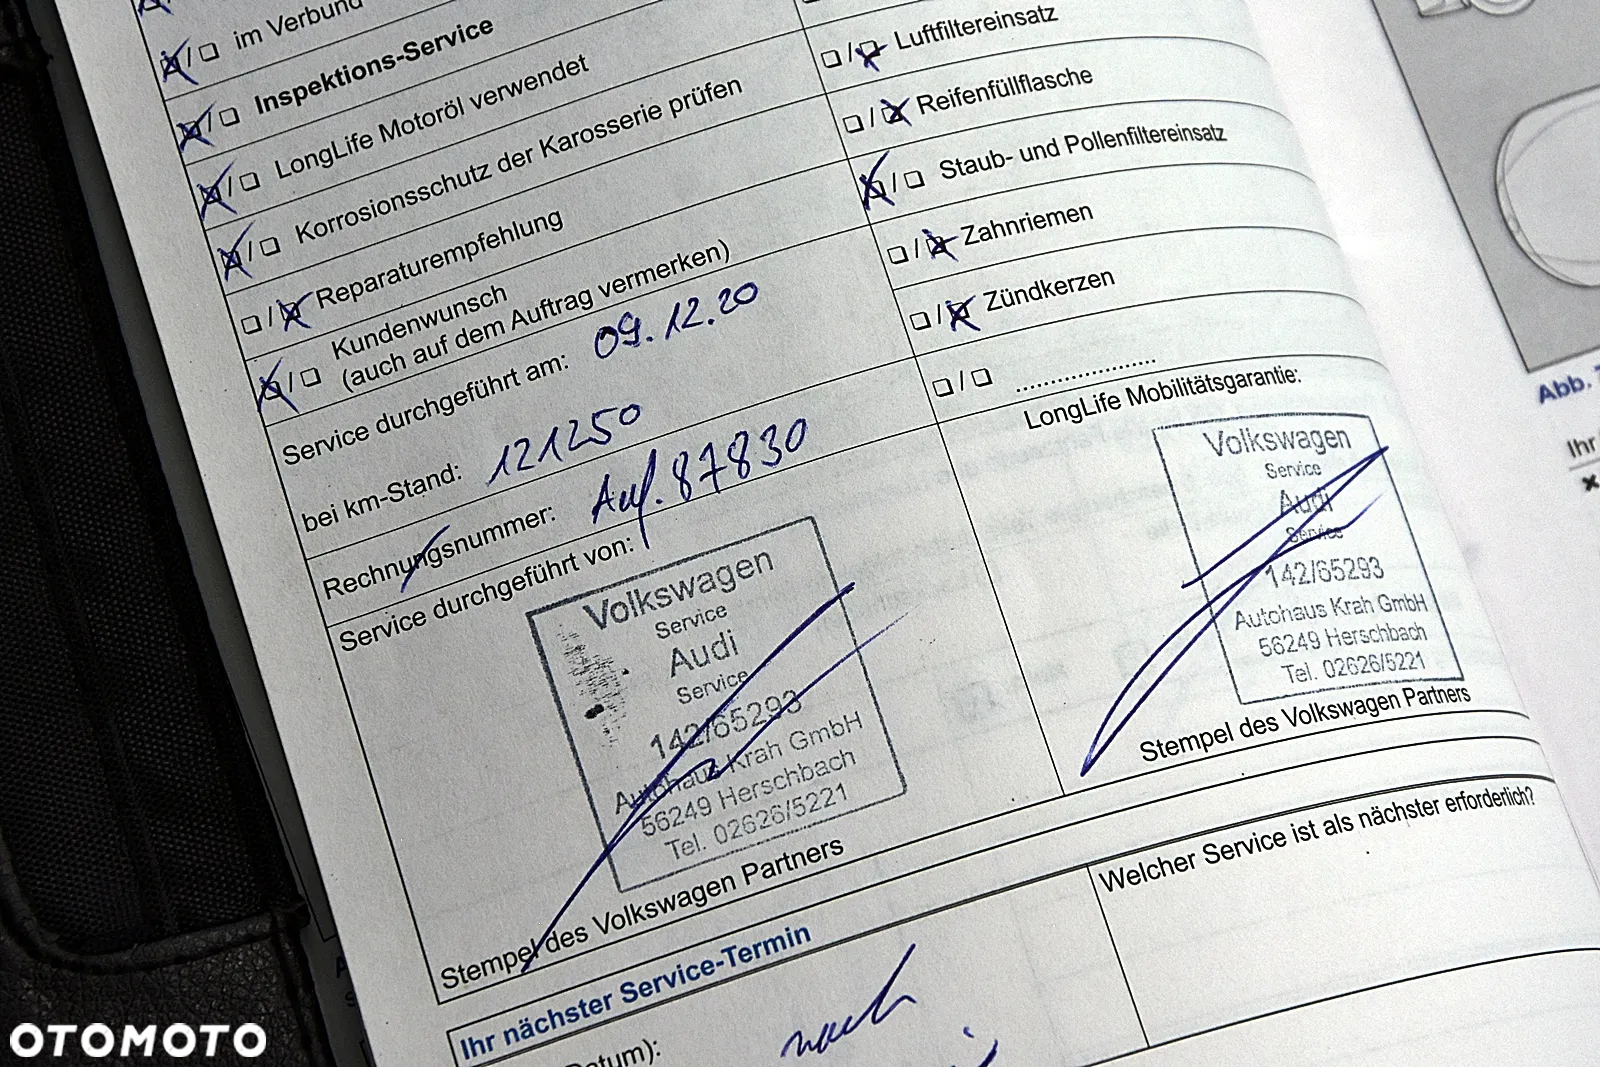 im Verbund
Inspektions-Service
LongLife Motoröl verwendet
Korrosionsschutz der Karosserie prüfen
Reparaturempfehlung
Kundenwunsch
(auch auf dem Auftrag vermerken)
Service durchgeführt am: 09.12.20
bei km-Stand: 121250
Rechnungsnummer: Auf. 87830
Service durchgeführt von:
Volkswagen
Service
Audi
Service
142/65293
Autohaus Krah GmbH
56249 Herschbach
Tel. 02626/5221
Stempel des Volkswagen Partners
Luftfiltereinsatz
Reifenfüllflasche
Staub- und Pollenfiltereinsatz
Zahnriemen
Zündkerzen
....................
LongLife Mobilitätsgarantie:
Volkswagen
Service
Audi
Service
142/65293
Autohaus Krah GmbH
56249 Herschbach
Tel. 02626/5221
Stempel des Volkswagen Partners
Ihr nächster Service-Termin
Datum): nach
Welcher Service ist als nächster erforderlich?
Abb.
Ihr
OTOMOTO